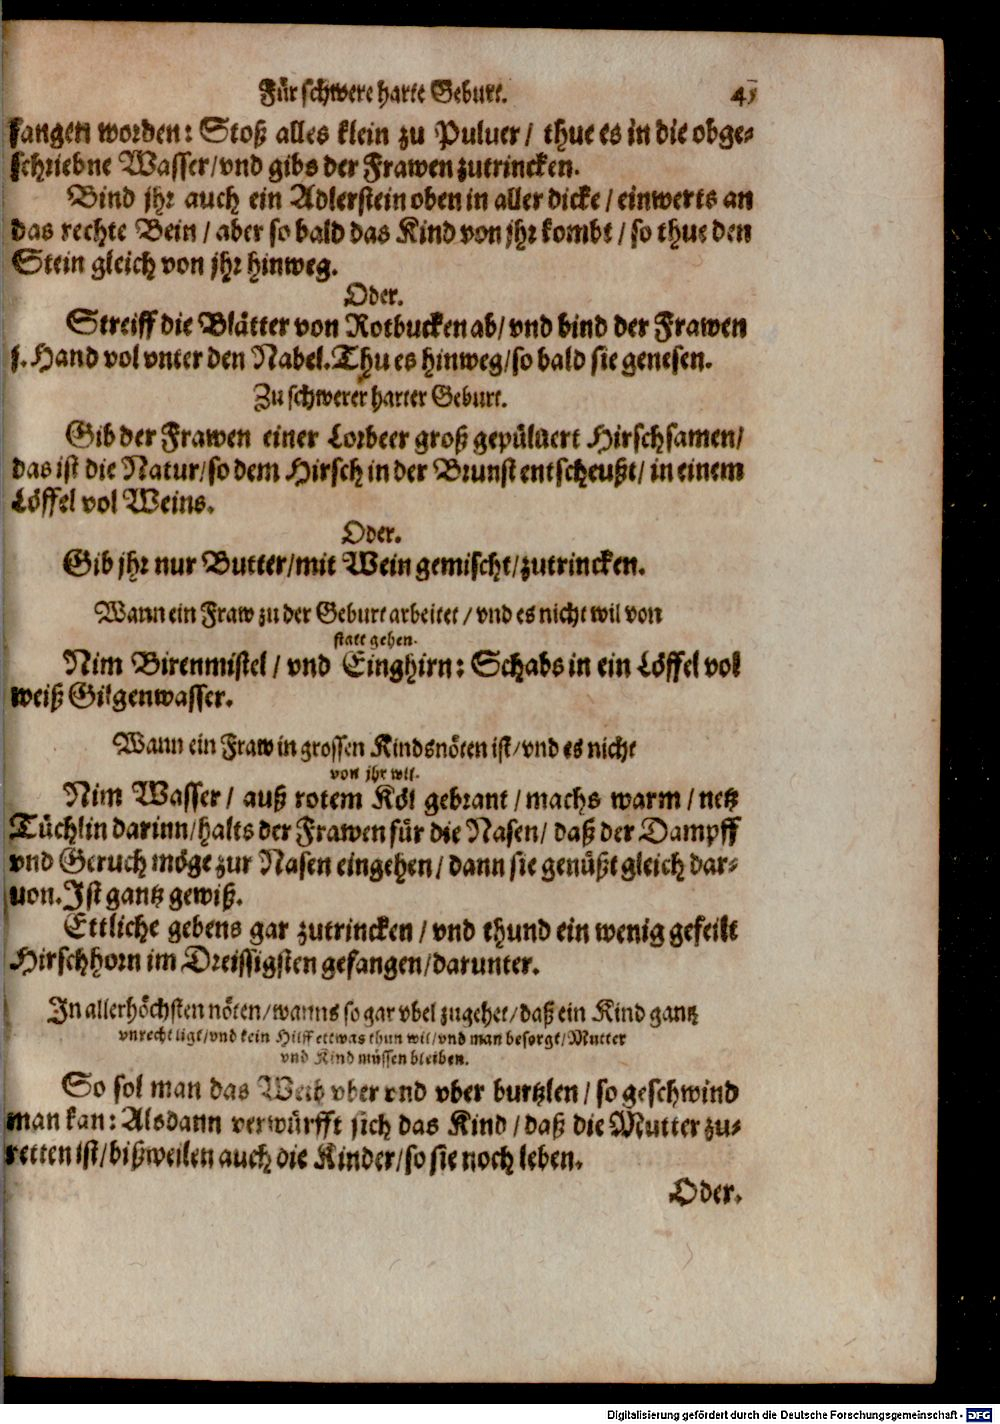 Für schwere harte Geburt. 45
fangen worden: Stoß alles klein zu Puluer/ thue es in die obge-
schriebne Wasser/vnd gibs der Frawen zutrincken.
Bind jhr auch ein Adlerstein oben in aller dicke/einwerts an
das rechte Bein/aber so bald das Kind von jhr kombt/so thue den
Stein gleich von jhr hinweg.
Oder.
Streiff die Blätter von Rotbucken ab/vnd bind der Frawen
j. Hand vol vnter den Nabel. Thu es hinweg/so bald sie genesen.
Zu schwerer harter Geburt.
Gib der Frawen einer Lorbeer groß gepüluert Hirschsamen/
das ist die Natur/so dem Hirsch in der Brunst entscheußt/in einem
Löffel vol Weins.
Oder.
Gib jhr nur Butter/mit Wein gemischt/zutrincken.
Wann ein Fraw zu der Geburt arbeitet/vnd es nicht wil von
statt gehen.
Nim Birenmistel/vnd Einghirn: Schabs in ein Löffel vol
weiß Gilgenwasser.
Wann ein Fraw in grossen Kindsnöten ist/vnd es nicht
von jhr wil.
Nim Wasser/ auß rotem Köl gebrant/machs warm/netz
Tüchlin darinn/halts der Frawen für die Nasen/daß der Dampff
vnd Geruch möge zur Nasen eingehen/dann sie genüßt gleich dar-
uon. Ist gantz gewiß.
Ettliche gebens gar zutrincken/vnd thund ein wenig gefeilt
Hirschhorn im Dreissigsten gefangen/darunter.
In allerhöchsten nöten/wanns so gar vbel zugehet/daß ein Kind gantz
vnrecht ligt/vnd kein Hilff ettwas thun wil/vnd man besorgt/Mutter
vnd Kind müssen bleiben.
So sol man das Weib vber vnd vber burtzlen/so geschwind
man kan: Alsdann verwürfft sich das Kind/daß die Mutter zu-
retten ist/bißweilen auch die Kinder/so sie noch leben.
Oder.
Digitalisierung gefördert durch die Deutsche Forschungsgemeinschaft - DFG